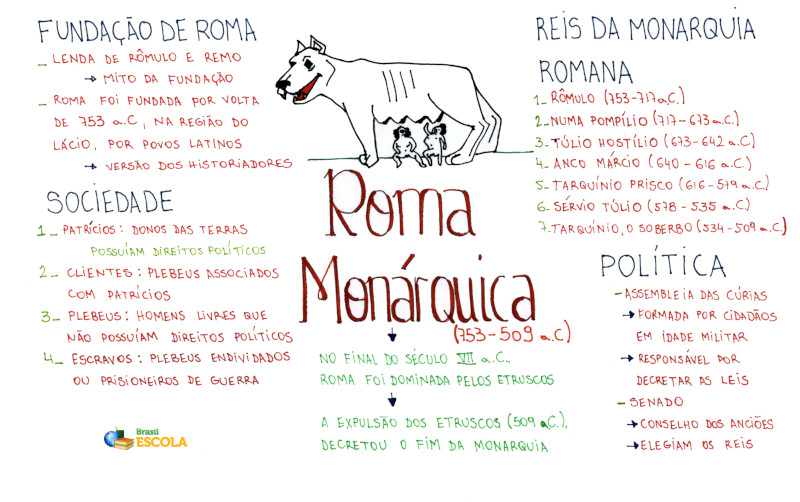 FUNDAÇÃO DE ROMA
_ LENDA DE RÔMULO E REMO
→ MITO DA FUNDAÇÃO
_ ROMA FOI FUNDADA POR VOLTA
DE 753 a.C, NA REGIÃO DO
LÁCIO, POR POVOS LATINOS
→ VERSÃO DOS HISTORIADORES
SOCIEDADE
1_ PATRÍCIOS: DONOS DAS TERRAS
POSSUÍAM DIREITOS POLÍTICOS
2_ CLIENTES: PLEBEUS ASSOCIADOS
COM PATRÍCIOS
3_ PLEBEUS: HOMENS LIVRES QUE
NÃO POSSUÍAM DIREITOS POLÍTICOS
4_ ESCRAVOS: PLEBEUS ENDIVIDADOS
OU PRISIONEIROS DE GUERRA
Brasil
ESCOLA
Roma
Monárquica
(753-509 a.C)
NO FINAL DO SÉCULO VII a.C.,
ROMA FOI DOMINADA PELOS ETRUSCOS
A EXPULSÃO DOS ETRUSCOS (509 a.C.),
DECRETOU O FIM DA MONARQUIA
REIS DA MONARQUIA
ROMANA
1_ RÔMULO (753-717 a.C.)
2_ NUMA POMPÍLIO (717-673 a.C.)
3_ TÚLIO HOSTÍLIO (673-642 a.C.)
4_ ANCO MÁRCIO (640-616 a.C.)
5_ TARQUÍNIO PRISCO (616-579 a.C.)
6_ SÉRVIO TÚLIO (578-535 a.C.)
7_ TARQUÍNIO, O SOBERBO (534-509 a.C.)
POLÍTICA
- ASSEMBLEIA DAS CÚRIAS
→ FORMADA POR CIDADÃOS
EM IDADE MILITAR
→ RESPONSÁVEL POR
DECRETAR AS LEIS
- SENADO
→ CONSELHO DOS ANCIÕES
→ ELEGIAM OS REIS